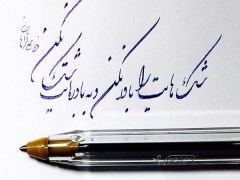 شک هایت را باور نکن و به باورهایت شک نکن